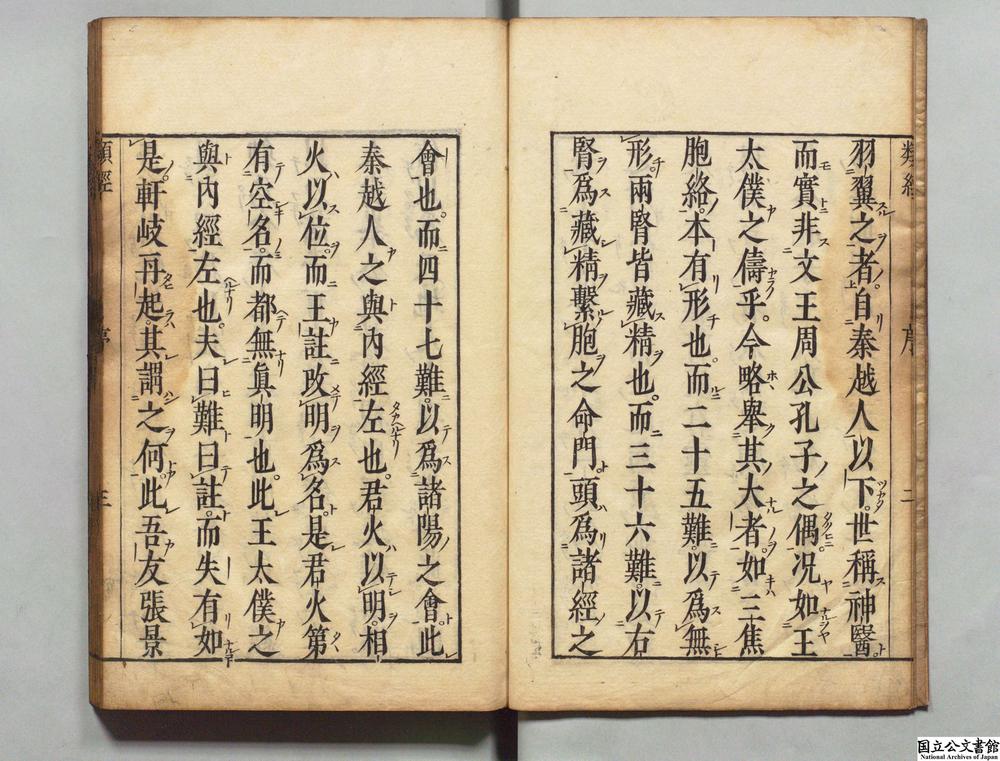 羽翼之者自秦越人以下世稱神醫
而實非文王周公孔子之偶况如王
太僕之儔乎今略舉其大者如三焦
胞絡本有形也而二十五難以爲無
形兩腎皆藏精也而三十六難以右
腎爲藏精繫胞之命門頭爲諸經之
會也而四十七難以爲諸陽之會此
秦越人之與內經左也君火以明相
火以位而王註攺明爲名是君火第
有空名而都無眞明也此王太僕之
與內經左也夫曰難曰註而失有如
是軒岐再起其謂之何此吾友張景
國立公文書館
National Archives of Japan